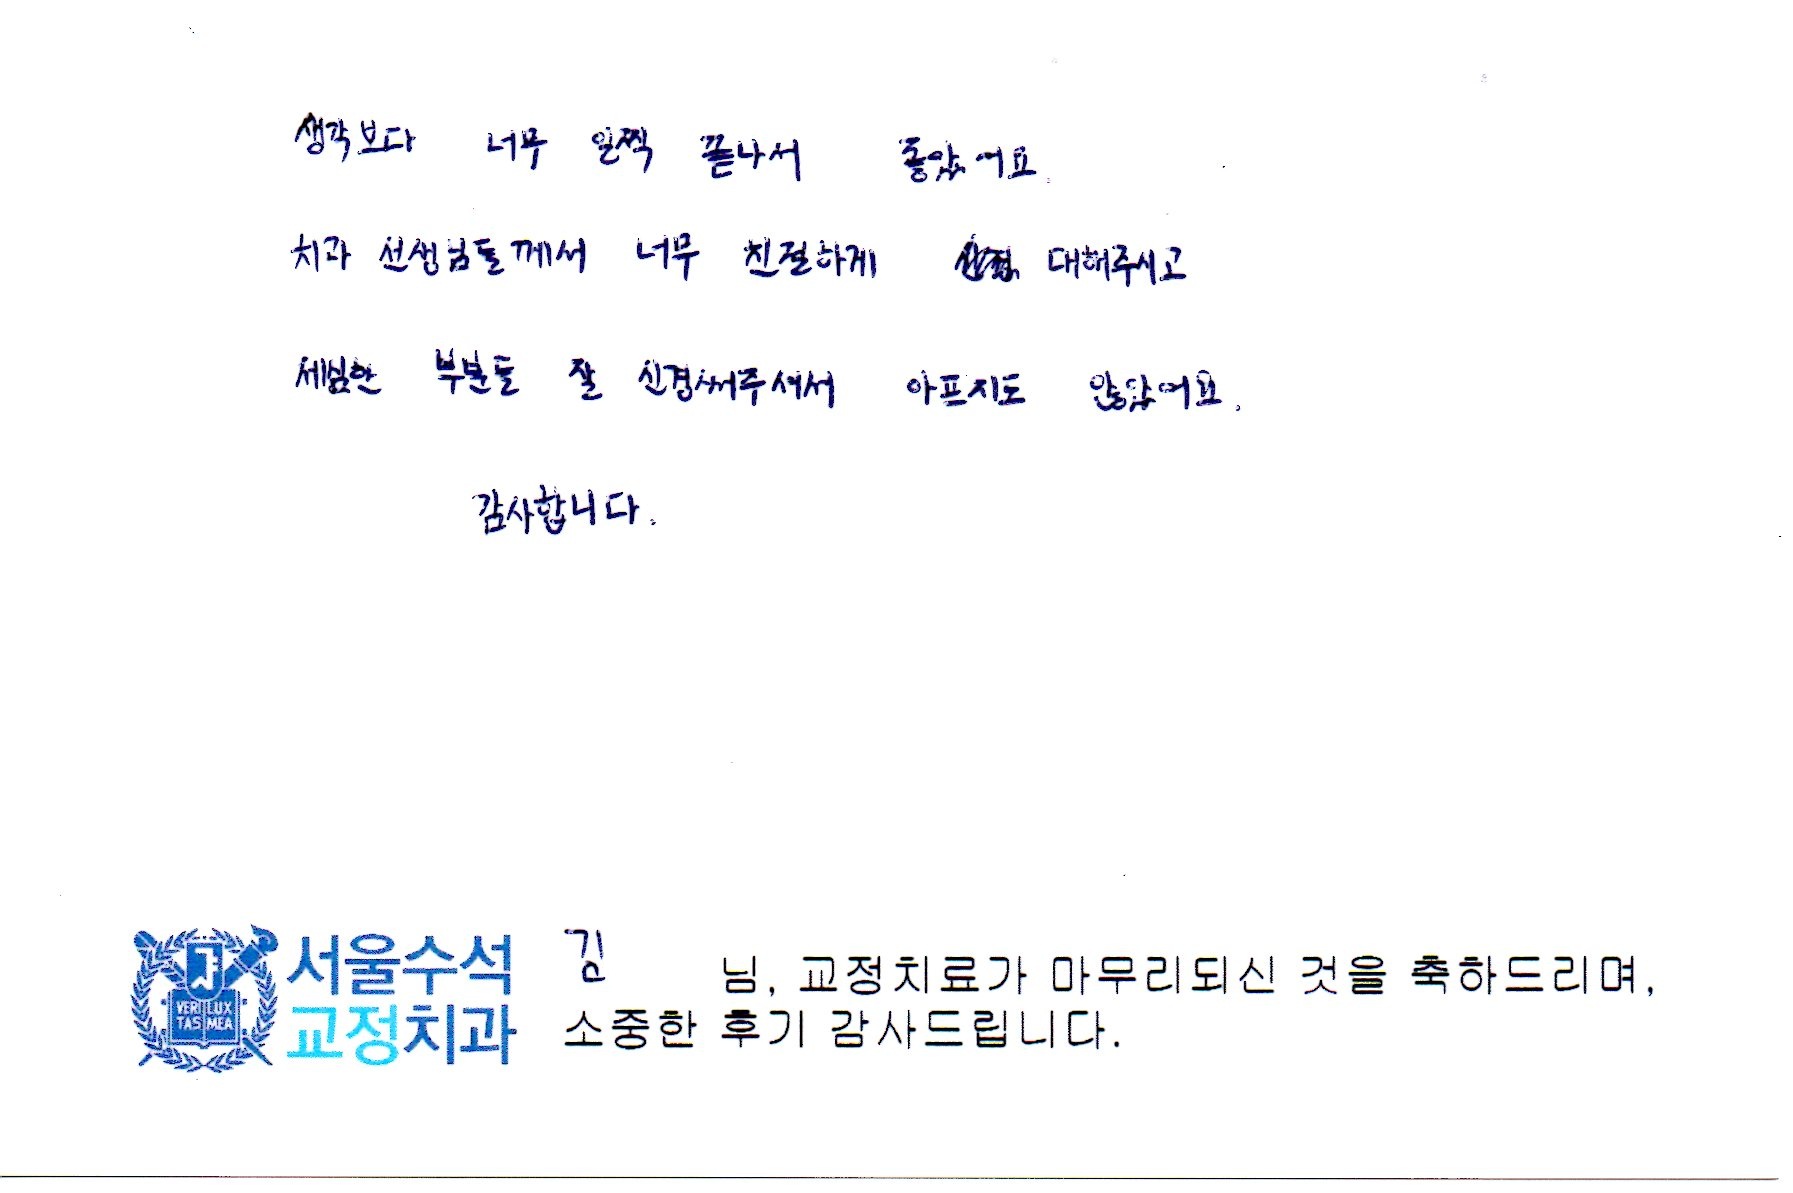 생각보다 너무 일찍 끝나서 좋았어요.
치과 선생님들께서 너무 친절하게 대해주시고
세심한 부분들 잘 신경써주셔서 아프지도 않았어요.
감사합니다.
VERI LUX
TAS MEA
서울수석
교정치과
김 님, 교정치료가 마무리되신 것을 축하드리며,
소중한 후기 감사드립니다.